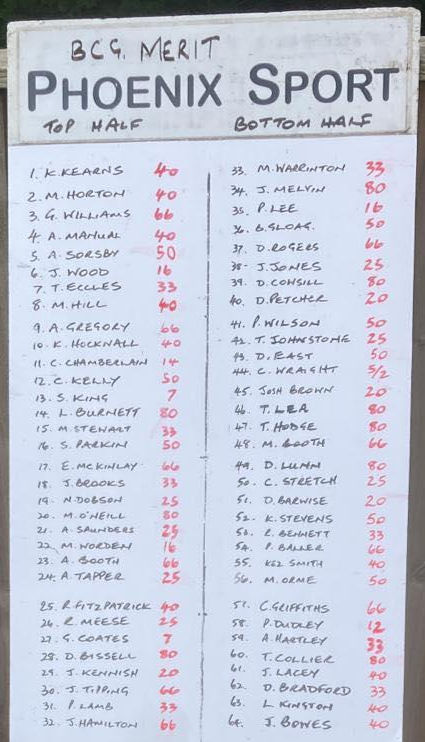 BCG. MERIT
PHOENIX SPORT
TOP HALF BOTTOM HALF
1. K. KEARNS 40
2. M. HORTON 40
3. G. WILLIAMS 66
4. A. MANUAL 40
5. A. SORSBY 50
6. J. WOOD 16
7. T. ECCLES 33
8. M. HILL 40
9. A. GREGORY 66
10. K. HOCKNALL 40
11. C. CHAMBERLAIN 14
12. C. KELLY 50
13. S. KING 7
14. L. BURNETT 80
15. M. STEWART 33
16. S. PARKIN 50
17. E. MCKINLAY 66
18. J. BROOKS 33
19. N. DOBSON 25
20. M. O'NEILL 80
21. A. SAUNDERS 25
22. M. WORDEN 16
23. A. BOOTH 66
24. A. TAPPER 25
25. R. FITZPATRICK 40
26. R. MEESE 25
27. G. COATES 7
28. D. BISSELL 80
29. J. KENNISH 20
30. J. TIPPING 66
31. P. LAMB 33
32. J. HAMILTON 66
33. M. WARRINTON 33
34. J. MELVIN 80
35. P. LEE 16
36. B. SLOAG. 50
37. D. ROGERS 66
38. J. JONES 25
39. D. CONSILL 80
40. D. PETCHER 20
41. P. WILSON 50
42. T. JOHNSTONE 25
43. D. EAST 50
44. C. WRAIGHT 5/2
45. JOSH BROWN 20
46. T. LEA 80
47. T. HODGE 80
48. M. BOOTH 66
49. D. LUNN 80
50. C. STRETCH 25
51. D. BARWISE 20
52. K. STEVENS 50
53. R. BENNETT 33
54. P. BALLER 66
55. KEZ SMITH 40
56. M. ORME 50
57. C. GRIFFITHS 66
58. P. DUDLEY 12
59. A. HARTLEY 33
60. T. COLLIER 80
61. J. LACEY 40
62. D. BRADFORD 33
63. L. KINGTON 40
64. J. BOWES 40